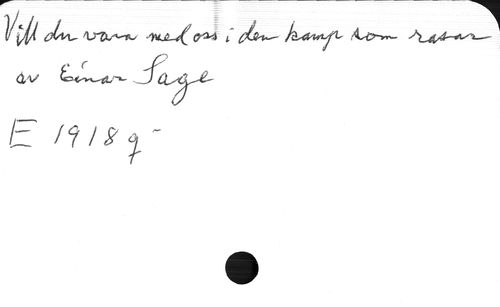 Vill du vara med oss i den kamp som rasar
av Einar Sage
E 1918 q-